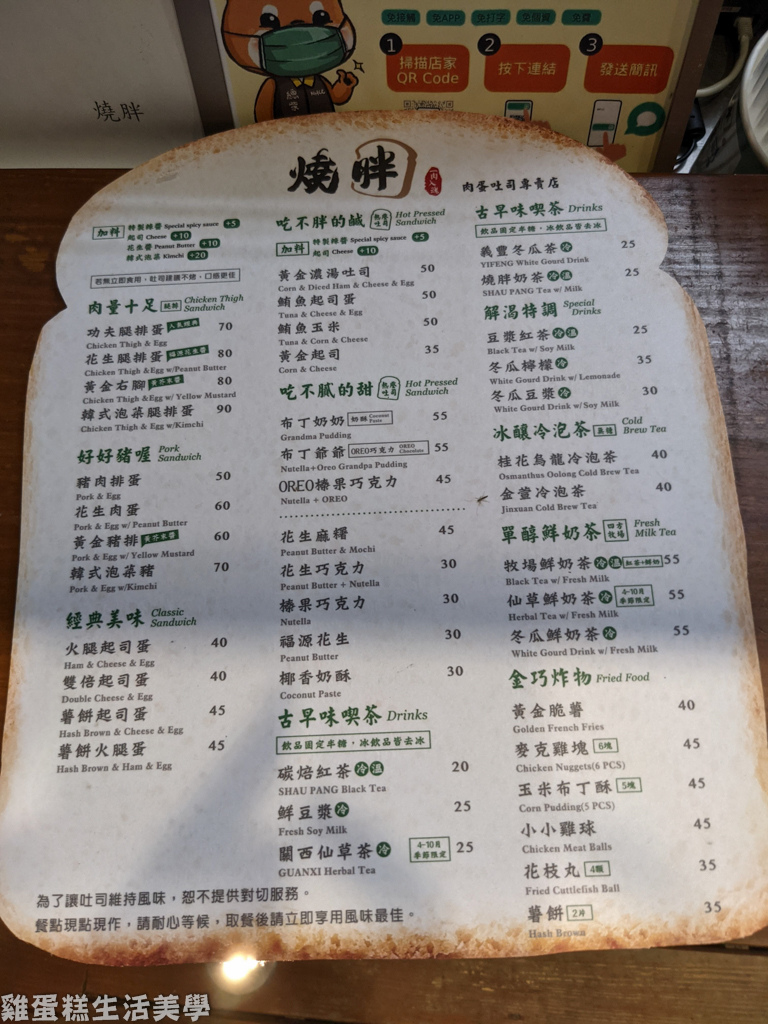 免接觸 免APP 免打字 免個資 免費
1 2 3
掃描店家
QR Code
按下連結
發送簡訊
燒胖
燒胖
肉蛋吐司專賣店
加料 特製辣醬 Special spicy sauce +5
起司 Cheese +10
花生醬 Peanut Butter +10
韓式泡菜 Kimchi +20
若無立即食用,吐司建議不烤,口感更佳
肉量十足 腿排 Chicken Thigh Sandwich
功夫腿排蛋 人氣經典 70
Chicken Thigh & Egg
花生腿排蛋 福源花生醬 80
Chicken Thigh &Egg w/Peanut Butter
黃金右腳 黃芥末醬 80
Chicken Thigh &Egg w/ Yellow Mustard
韓式泡菜腿排蛋 90
Chicken Thigh & Egg w/Kimchi
好好豬喔 Pork Sandwich
豬肉排蛋 50
Pork & Egg
花生肉蛋 60
Pork & Egg w/ Peanut Butter
黃金豬排 黃芥末醬 60
Pork & Egg w/ Yellow Mustard
韓式泡菜豬 70
Pork & Egg w/Kimchi
經典美味 Classic Sandwich
火腿起司蛋 40
Ham & Cheese & Egg
雙倍起司蛋 40
Double Cheese & Egg
薯餅起司蛋 45
Hash Brown & Cheese & Egg
薯餅火腿蛋 45
Hash Brown & Ham & Egg
吃不胖的鹹 熱壓吐司 Hot Pressed Sandwich
加料 特製辣醬 Special spicy sauce +5
起司 Cheese +10
黃金濃湯吐司 50
Corn & Diced Ham & Cheese & Egg
鮪魚起司蛋 50
Tuna & Cheese & Egg
鮪魚玉米 50
Tuna & Corn & Cheese
黃金起司 35
Corn & Cheese
吃不膩的甜 熱壓吐司 Hot Pressed Sandwich
布丁奶奶 奶酥 Coconut Paste 55
Grandma Pudding
布丁爺爺 OREO巧克力 OREO Chocolate 55
Nutella+Oreo Grandpa Pudding
OREO榛果巧克力 45
Nutella + OREO
花生麻糬 45
Peanut Butter & Mochi
花生巧克力 30
Peanut Butter + Nutella
榛果巧克力 30
Nutella
福源花生 30
Peanut Butter
椰香奶酥 30
Coconut Paste
古早味喫茶 Drinks
飲品固定半糖,冰飲品皆去冰
碳焙紅茶 冷 溫 20
SHAU PANG Black Tea
鮮豆漿 冷 25
Fresh Soy Milk
關西仙草茶 冷 4-10月 季節限定 25
GUANXI Herbal Tea
古早味喫茶 Drinks
飲品固定半糖,冰飲品皆去冰
義豐冬瓜茶 冷 25
YIFENG White Gourd Drink
燒胖奶茶 冷 溫 25
SHAU PANG Tea w/ Milk
解渴特調 Special Drinks
豆漿紅茶 冷 溫 25
Black Tea w/ Soy Milk
冬瓜檸檬 冷 35
White Gourd Drink w/ Lemonade
冬瓜豆漿 冷 30
White Gourd Drink w/Soy Milk
冰釀冷泡茶 無糖 Cold Brew Tea
桂花烏龍冷泡茶 40
Osmanthus Oolong Cold Brew Tea
金萱冷泡茶 40
Jinxuan Cold Brew Tea
單醇鮮奶茶 四方牧場 Fresh Milk Tea
牧場鮮奶茶 冷 溫 紅茶+鮮奶 55
Black Tea w/ Fresh Milk
仙草鮮奶茶 冷 4-10月 季節限定 55
Herbal Tea w/ Fresh Milk
冬瓜鮮奶茶 冷 55
White Gourd Drink w/ Fresh Milk
金巧炸物 Fried Food
黃金脆薯 40
Golden French Fries
麥克雞塊 6塊 45
Chicken Nuggets(6 PCS)
玉米布丁酥 5塊 45
Corn Pudding(5 PCS)
小小雞球 45
Chicken Meat Balls
花枝丸 4顆 35
Fried Cuttlefish Ball
薯餅 2片 35
Hash Brown
為了讓吐司維持風味,恕不提供對切服務。
餐點現點現作,請耐心等候,取餐後請立即享用風味最佳。
雞蛋糕生活美學